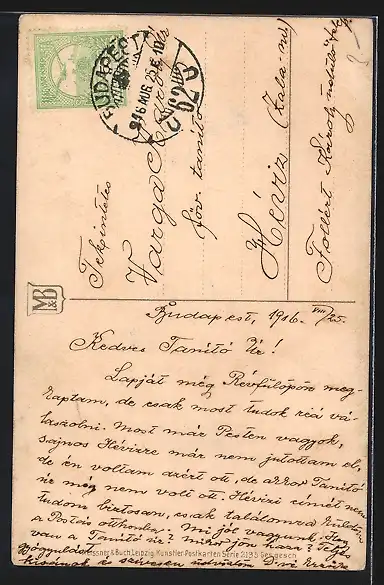 BUDAPEST
916 AUG 25
Tekintetes
Varga
főv. tanító
Hévíz
(Zala-m)
Follért Károly
M&B
Budapest, 1916. VIII/25.
Kedves Tanító Úr!
Lapját még Révfülöpön meg-
kaptam, de csak most tudok reá vá-
laszolni. Most már Pesten vagyok,
sajnos Hévízre már nem jutottam el,
de én voltam azért ott, de akkor Tanító
úr még nem volt ott. Hévízi címét nem
tudom biztosan, csak találomra küldöm
a Postás otthonba. Mi jól vagyunk. Hogy
van a Tanító úr? mikor jön haza?
Meissner & Buch, Leipzig. Künstler-Postkarten Serie 2193 Ges. gesch.
és szívesen üdvözlöm